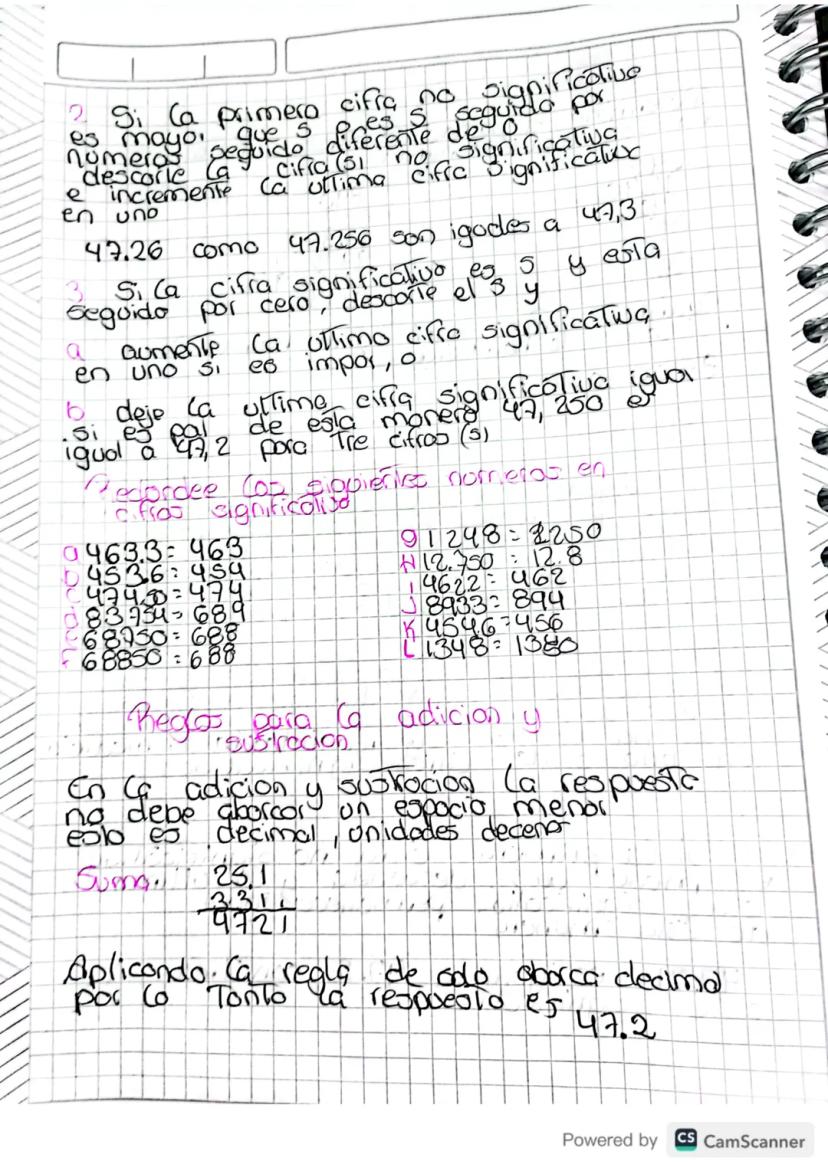 2 Si la primera cifra no significativa
es mayor que 5 o es 5 seguido por
números seguido diferente de 0
descarte la cifra(s) no significativa
e incremente la ultima cifra significativa
en uno
47.26 como 47.256 son iguales a 47,3
3 Si la cifra significativa es 5 y esta
seguido por cero, descarte el 5 y
a aumente la ultima cifra significativa
en uno si es impar, o
b deje la ultima cifra significativa igual
si es par de esta manera 47,250 es
igual a 47,2 para Tre cifras (s)
Redondee los siguientes numeros en
cifras significativa
a 463.3 = 463
b 453.6 = 454
c 474.50 = 474
d 83754 = 689
e 68750 = 688
f 68850 = 688
g 1248 = 1250
H 12.750 = 12.8
I 4622 = 462
J 8933 = 894
K 4546 = 456
L 1.348 = 1380
Reglas para la adicion y
sustracion
En la adicion y sustracion la respuesta
no debe abarcar un espacio menor
esto es decimal, unidades decena
Suma. 25.1
9721
Aplicando la regla de solo abarca decimal
por lo Tanto la respuesta es 47.2
Powered by CS CamScanner